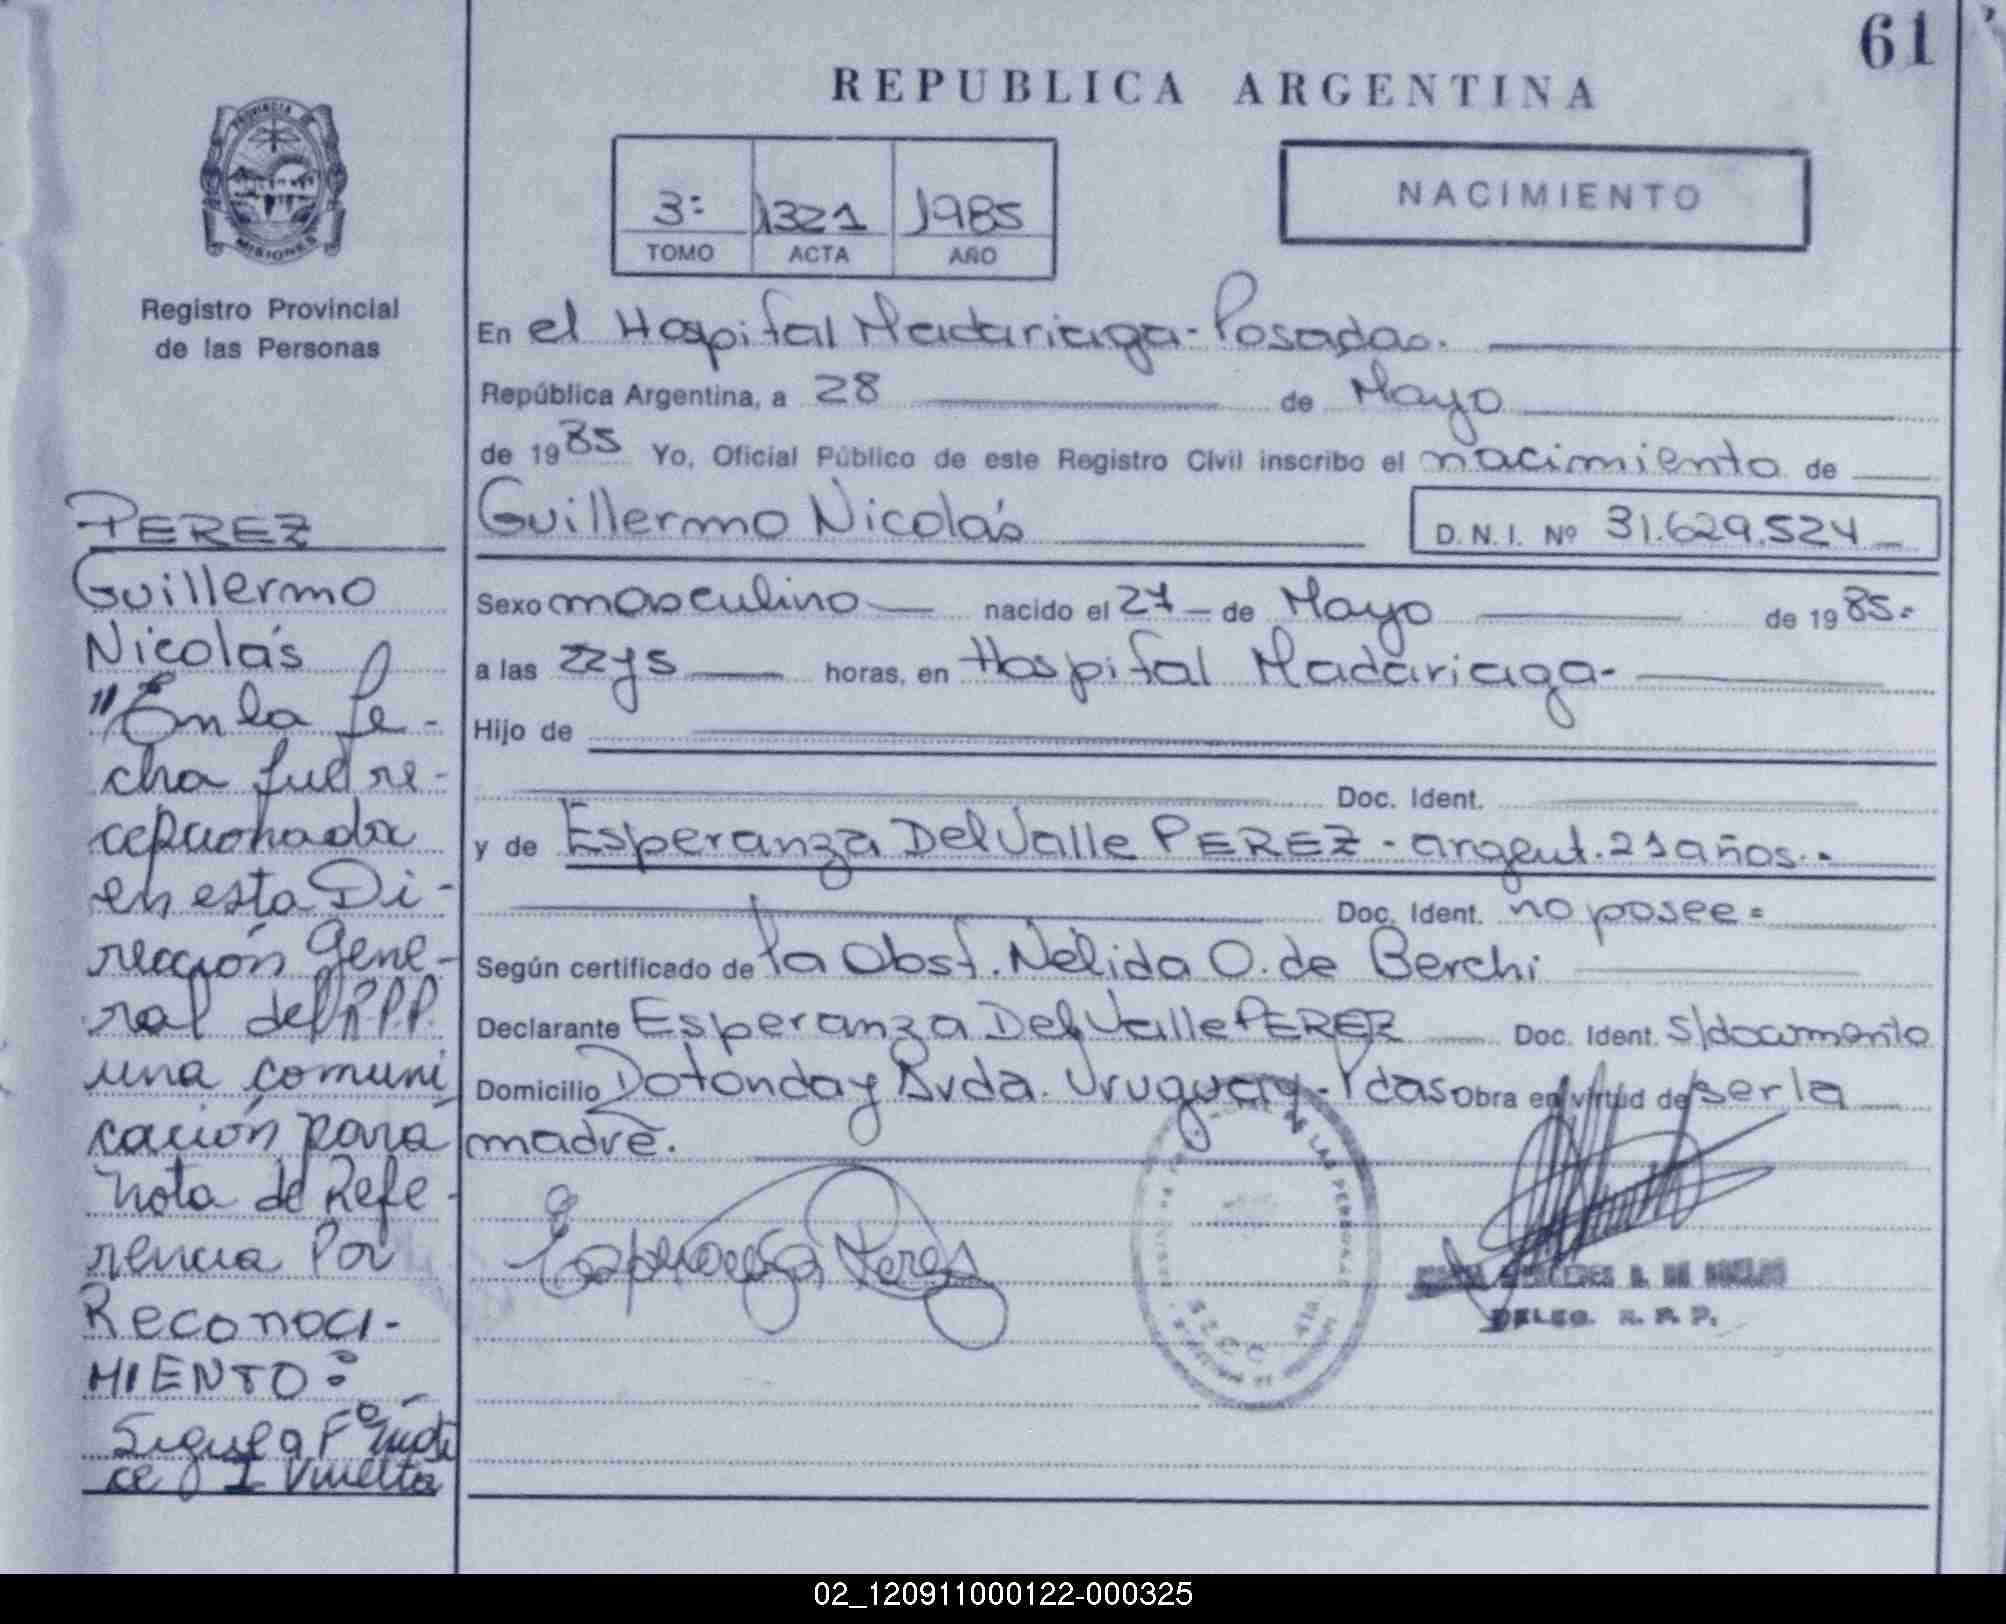 61
REPUBLICA ARGENTINA
PROVINCIA DE
MISIONES
Registro Provincial
de las Personas
3º 1321 1985
TOMO ACTA AÑO
NACIMIENTO
En el Hospital Madariaga-Posadas.
República Argentina, a 28 de Mayo
de 1985 Yo, Oficial Público de este Registro Civil inscribo el nacimiento de
Guillermo Nicolás D.N.I. Nº 31.629.524
Sexo masculino nacido el 27 de Mayo de 1985.
a las 22y5 horas, en Hospital Madariaga-
Hijo de
Doc. Ident.
y de Esperanza Del Valle PEREZ - argent. 21 años.-
Doc. Ident. no posee=
Según certificado de la Obst. Nélida O. de Berchi
Declarante Esperanza Del Valle PEREZ Doc. Ident. s/documento
Domicilio Dotonda y Avda. Uruguay - Pdas Obra en virtud de ser la
madre.
Esperanza Perez
DE LAS PERSONAS
DELEG. R. P. P.
PEREZ
Guillermo
Nicolás
"En la fe-
cha fue re-
cepcionada
en esta Di-
rección Gene-
ral del R.P.P.
una comuni
cación para
Nota de Refe-
rencia Por
RECONOCI-
MIENTO:
Sigue a Fº Indi
ce 1 Vuelta
02_120911000122-000325